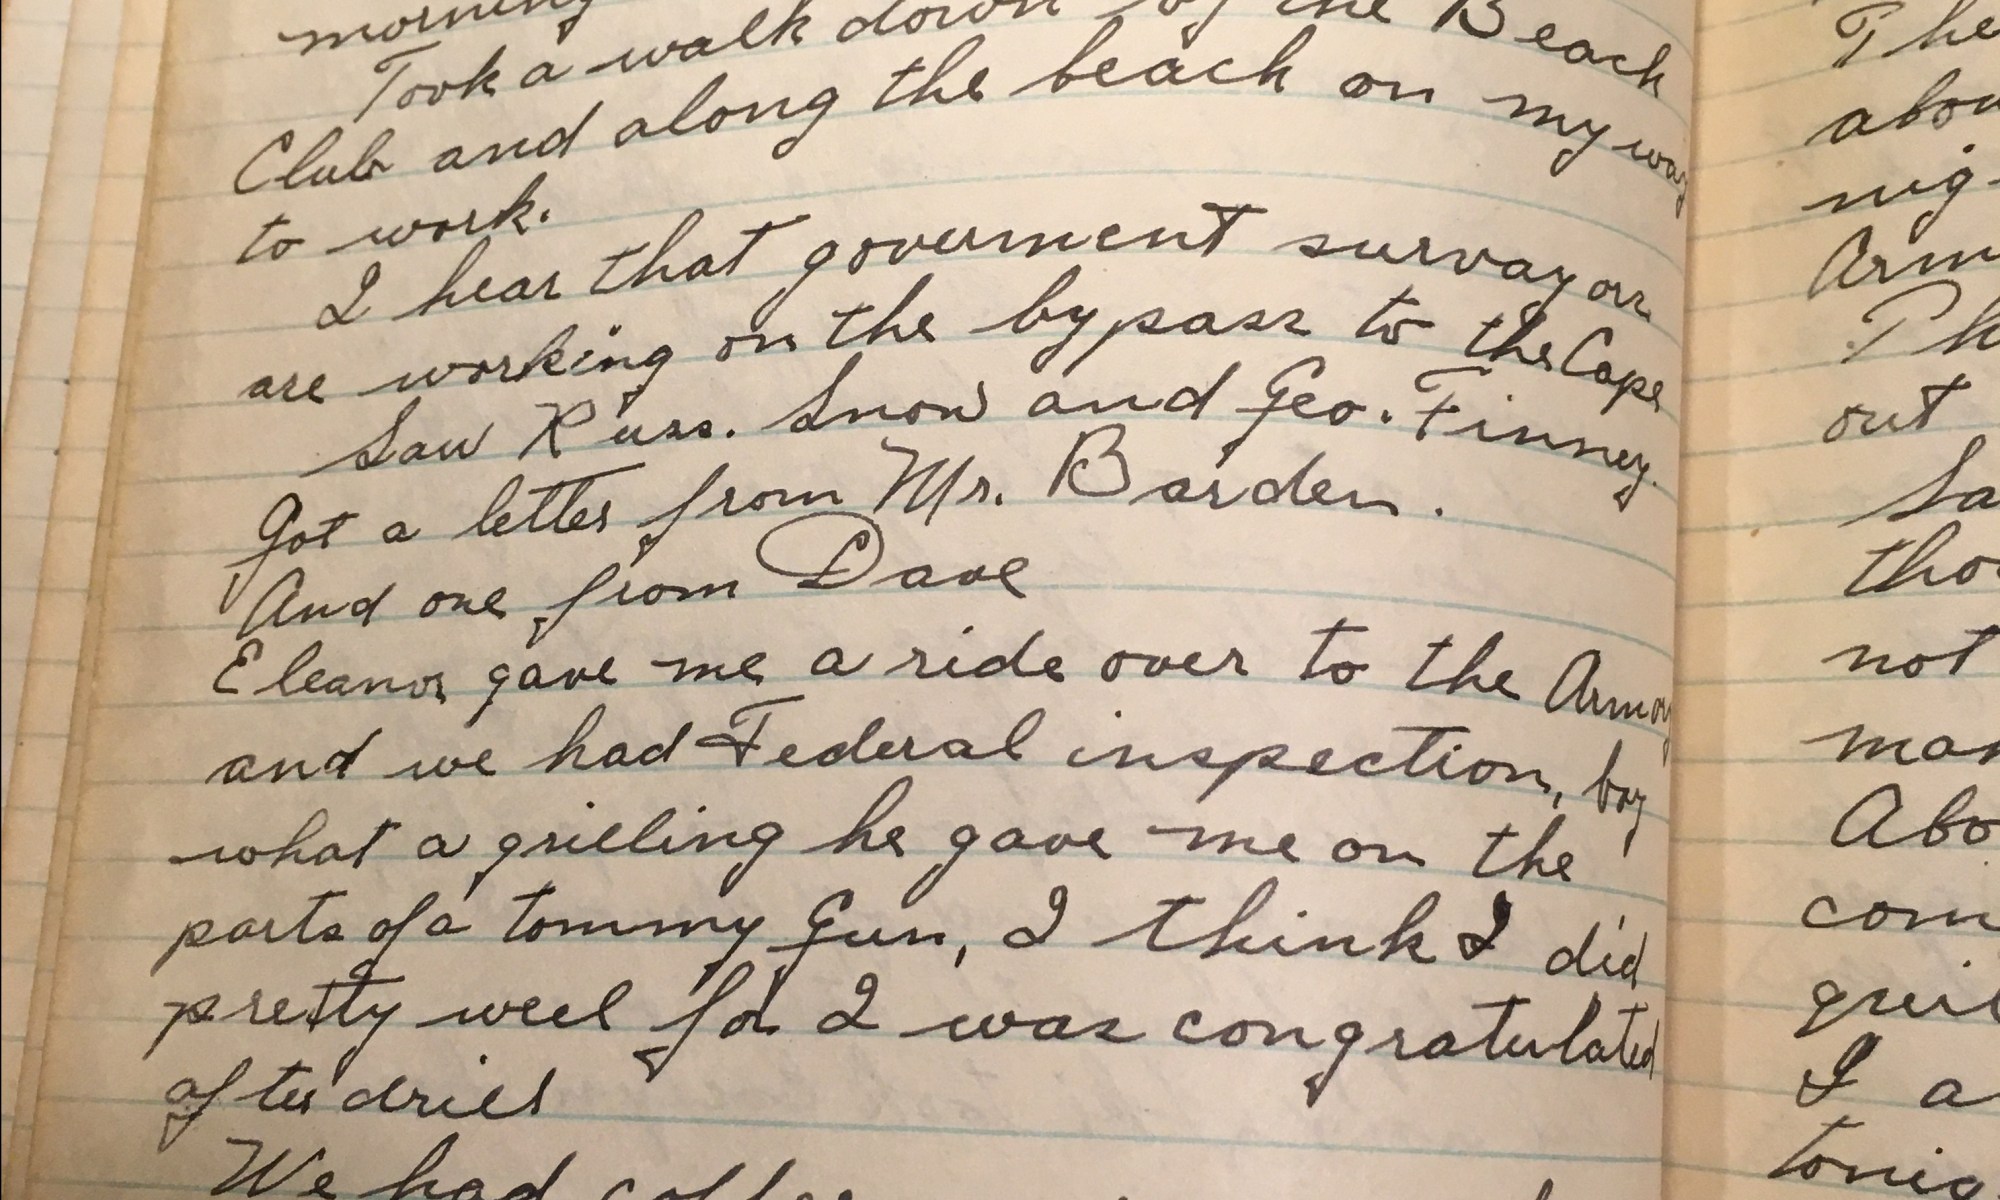 morning
Took a walk down by the Beach
Club and along the beach on my way
to work.
I hear that goverment survayors
are working on the bypass to the Cape
Saw Russ. Snow and Geo. Finney.
Got a letter from Mr. Barden.
And one from Dave
Eleanor gave me a ride over to the Armory
and we had Federal inspection, boy
what a grilling he gave me on the
parts of a tommy Gun, I think I did
pretty well for I was congratulated
after drill
We had coffee
The
abou
nig
Arm
Th
out
Sa
tho
not
man
Abo
com
I a
tonig